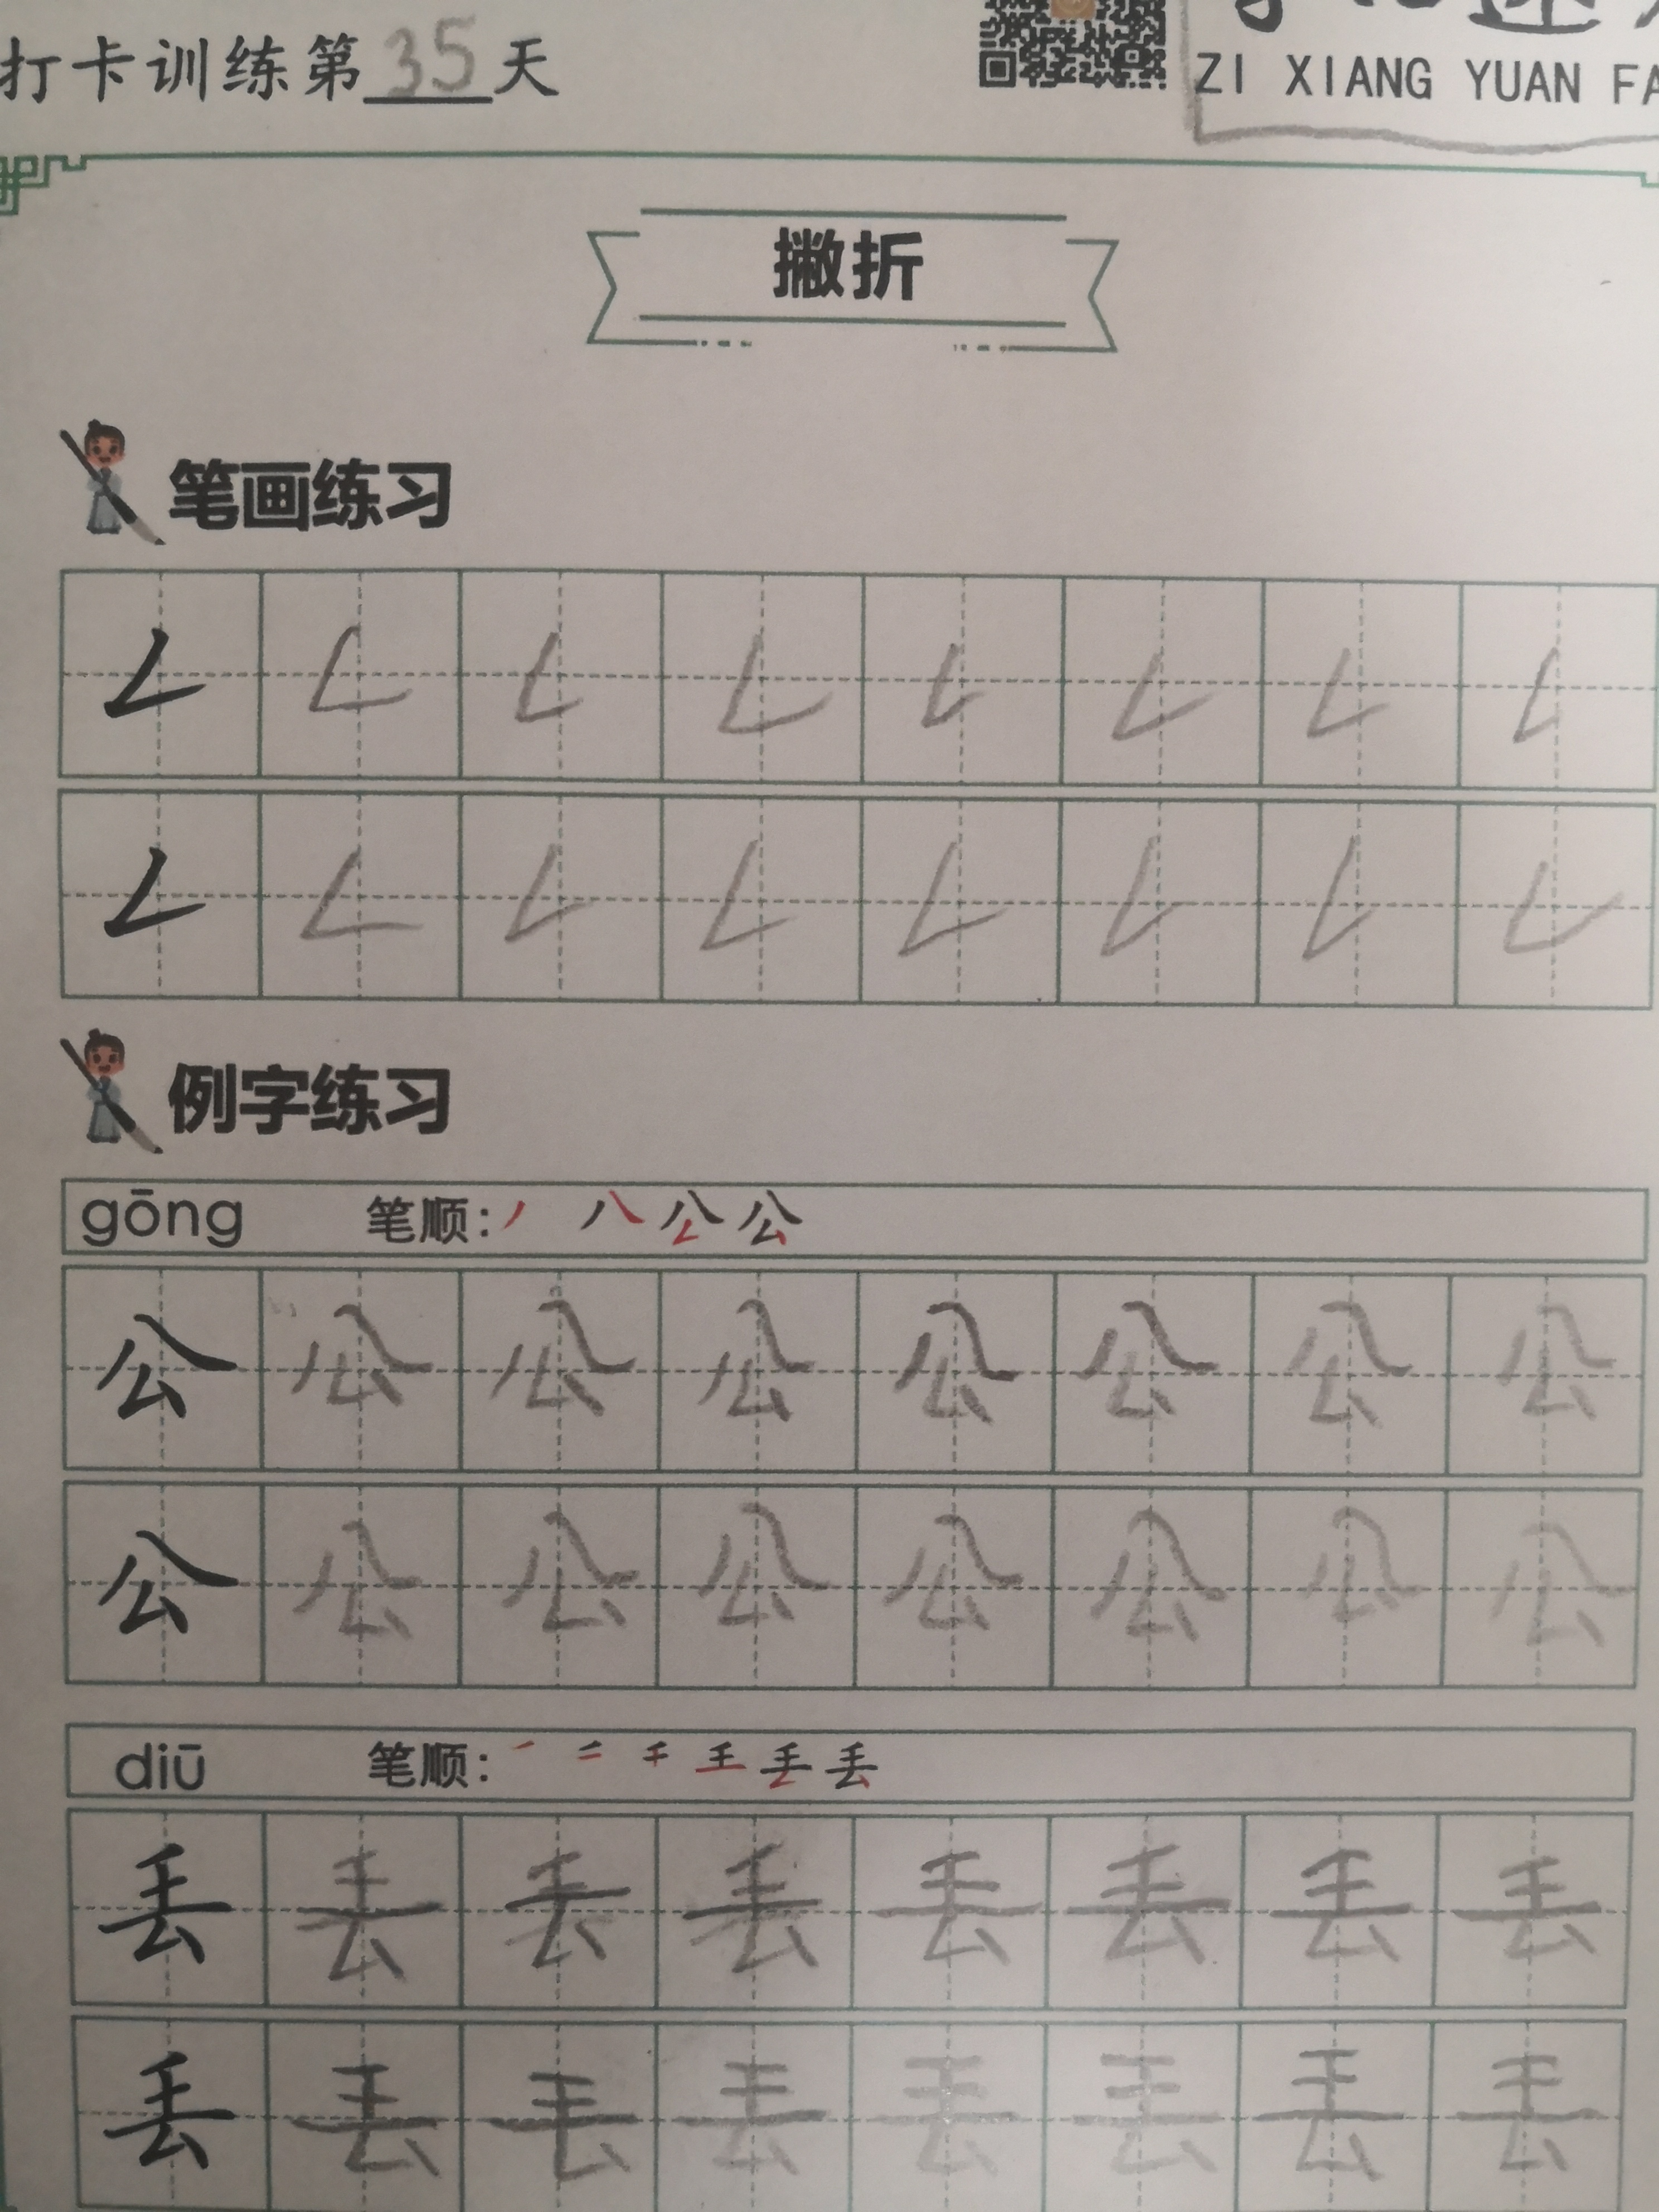 打卡训练第35天
ZI XIANG YUAN FA
撇折
笔画练习
例字练习
gōng 笔顺:丿 八 公 公
公 公 公 公 公 公 公 公
公 公 公 公 公 公 公 公
diū 笔顺: 丢
丢 丢 丢 丢 丢 丢 丢 丢
丢 丢 丢 丢 丢 丢 丢 丢